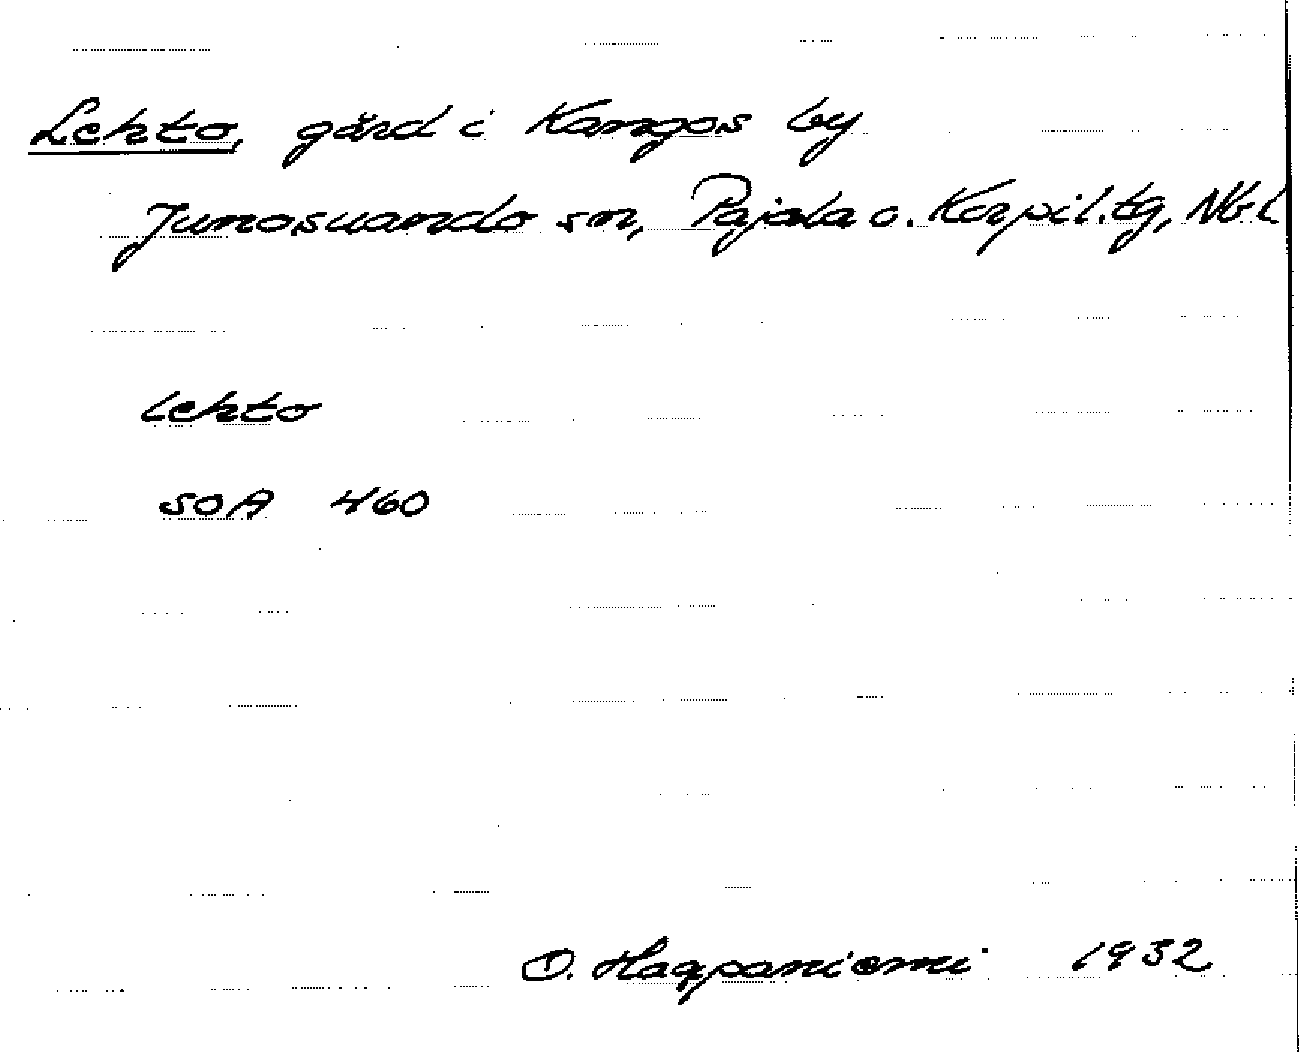 Lehto, gård i Kangos by
Junosuando sn, Pajala o. Korpil. tg, Nbl
lehto
SOA 460
O. Haapaniemi 1932